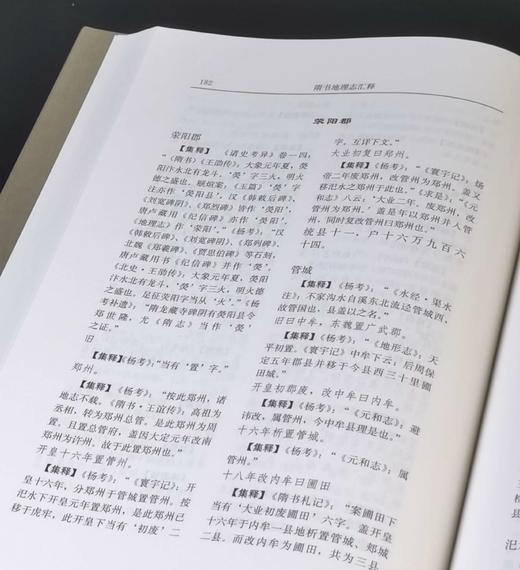 182
隋书地理志汇释
荥阳郡
荥阳郡
【集释】《诸史考异》卷一四:
“《隋书》《王劭传》:大象元年夏,荥
阳汴水北有龙斗,‘荧’字三火,明火
德之盛也。颐煊案:《玉篇》‘荧’字
注亦作‘荧阳县’,汉《韩敕后碑》、
《刘宽碑阴》、《郑烈碑》皆作‘荧阳’,
唐卢藏用《纪信碑》亦作‘荧阳’。
《地理志》作‘荥阳’。”《杨考》:“汉
《韩敕后碑》、《刘宽碑阴》、《郑列碑》、
北魏《郑羲碑》、《贾思伯碑》等石刻,
唐卢藏用书《纪信碑》并作‘荧’。
《北史·王劭传》:大象元年夏,荧阳
汴水北有龙斗,‘荧’字三火,明火德
之盛也。是征荧阳字当从‘火’。”《杨
考补遗》:“隋龙藏寺碑阴有荧阳县令
郑世隆,尤《隋志》当作‘荧’
之证。”
旧
【集释】《杨考》:“当有‘置’字。”
郑州。
【集释】《杨考》:“按此郑州,诸
地志不载。《隋书·王谊传》:高祖为
丞相,转为郑州总管。是此郑州为周
置。且置总管府,盖因大定元年改南
郑州为许州。故于此置郑州也。”
开皇十六年置管州。
【集释】《杨考》:“《寰宇记》:开
皇十六年,分郑州于管城置管州。按
汜水下开皇元年置郑州,是此郑州已
移于虎牢,此开皇下当有‘初废’二
字,互详下文。”
大业初复曰郑州。
【集释】《杨考》:“《寰宇记》:炀
帝二年废郑州,改管州为郑州。盖又
移汜水之郑州于此也。”《求是》:“《元
和志》八云:‘大业二年,废郑州,改
管州为郑州。’盖是年以郑州并入管
州,同时复改管州曰郑州也。”
统县十一,户十六万九百六
十四。
管城
【集释】《杨考》:“《水经·渠水
注》:不家沟水自溪东北流迳管城西,
故管国也,县盖以之名。”
旧曰中牟,东魏置广武郡。
【集释】《杨考》:“《地形志》:天
平初置。《寰宇记》中牟下云:后周保
定五年郡县并移于今县西三十里圃
田城。”
开皇初郡废,改中牟曰内牟。
【集释】《杨考》:“《元和志》:避
讳改,属管州,今中牟县理是也。”
十六年析置管城。
【集释】《杨考》:“《元和志》:属
管州。”
十八年改内牟曰圃田
【集释】《隋书札记》:“案圃田下
当有‘大业初废圃田’六字。盖开皇
十六年于内牟一县地析置管城、郏城
二县。而改内牟为圃田,共为三县